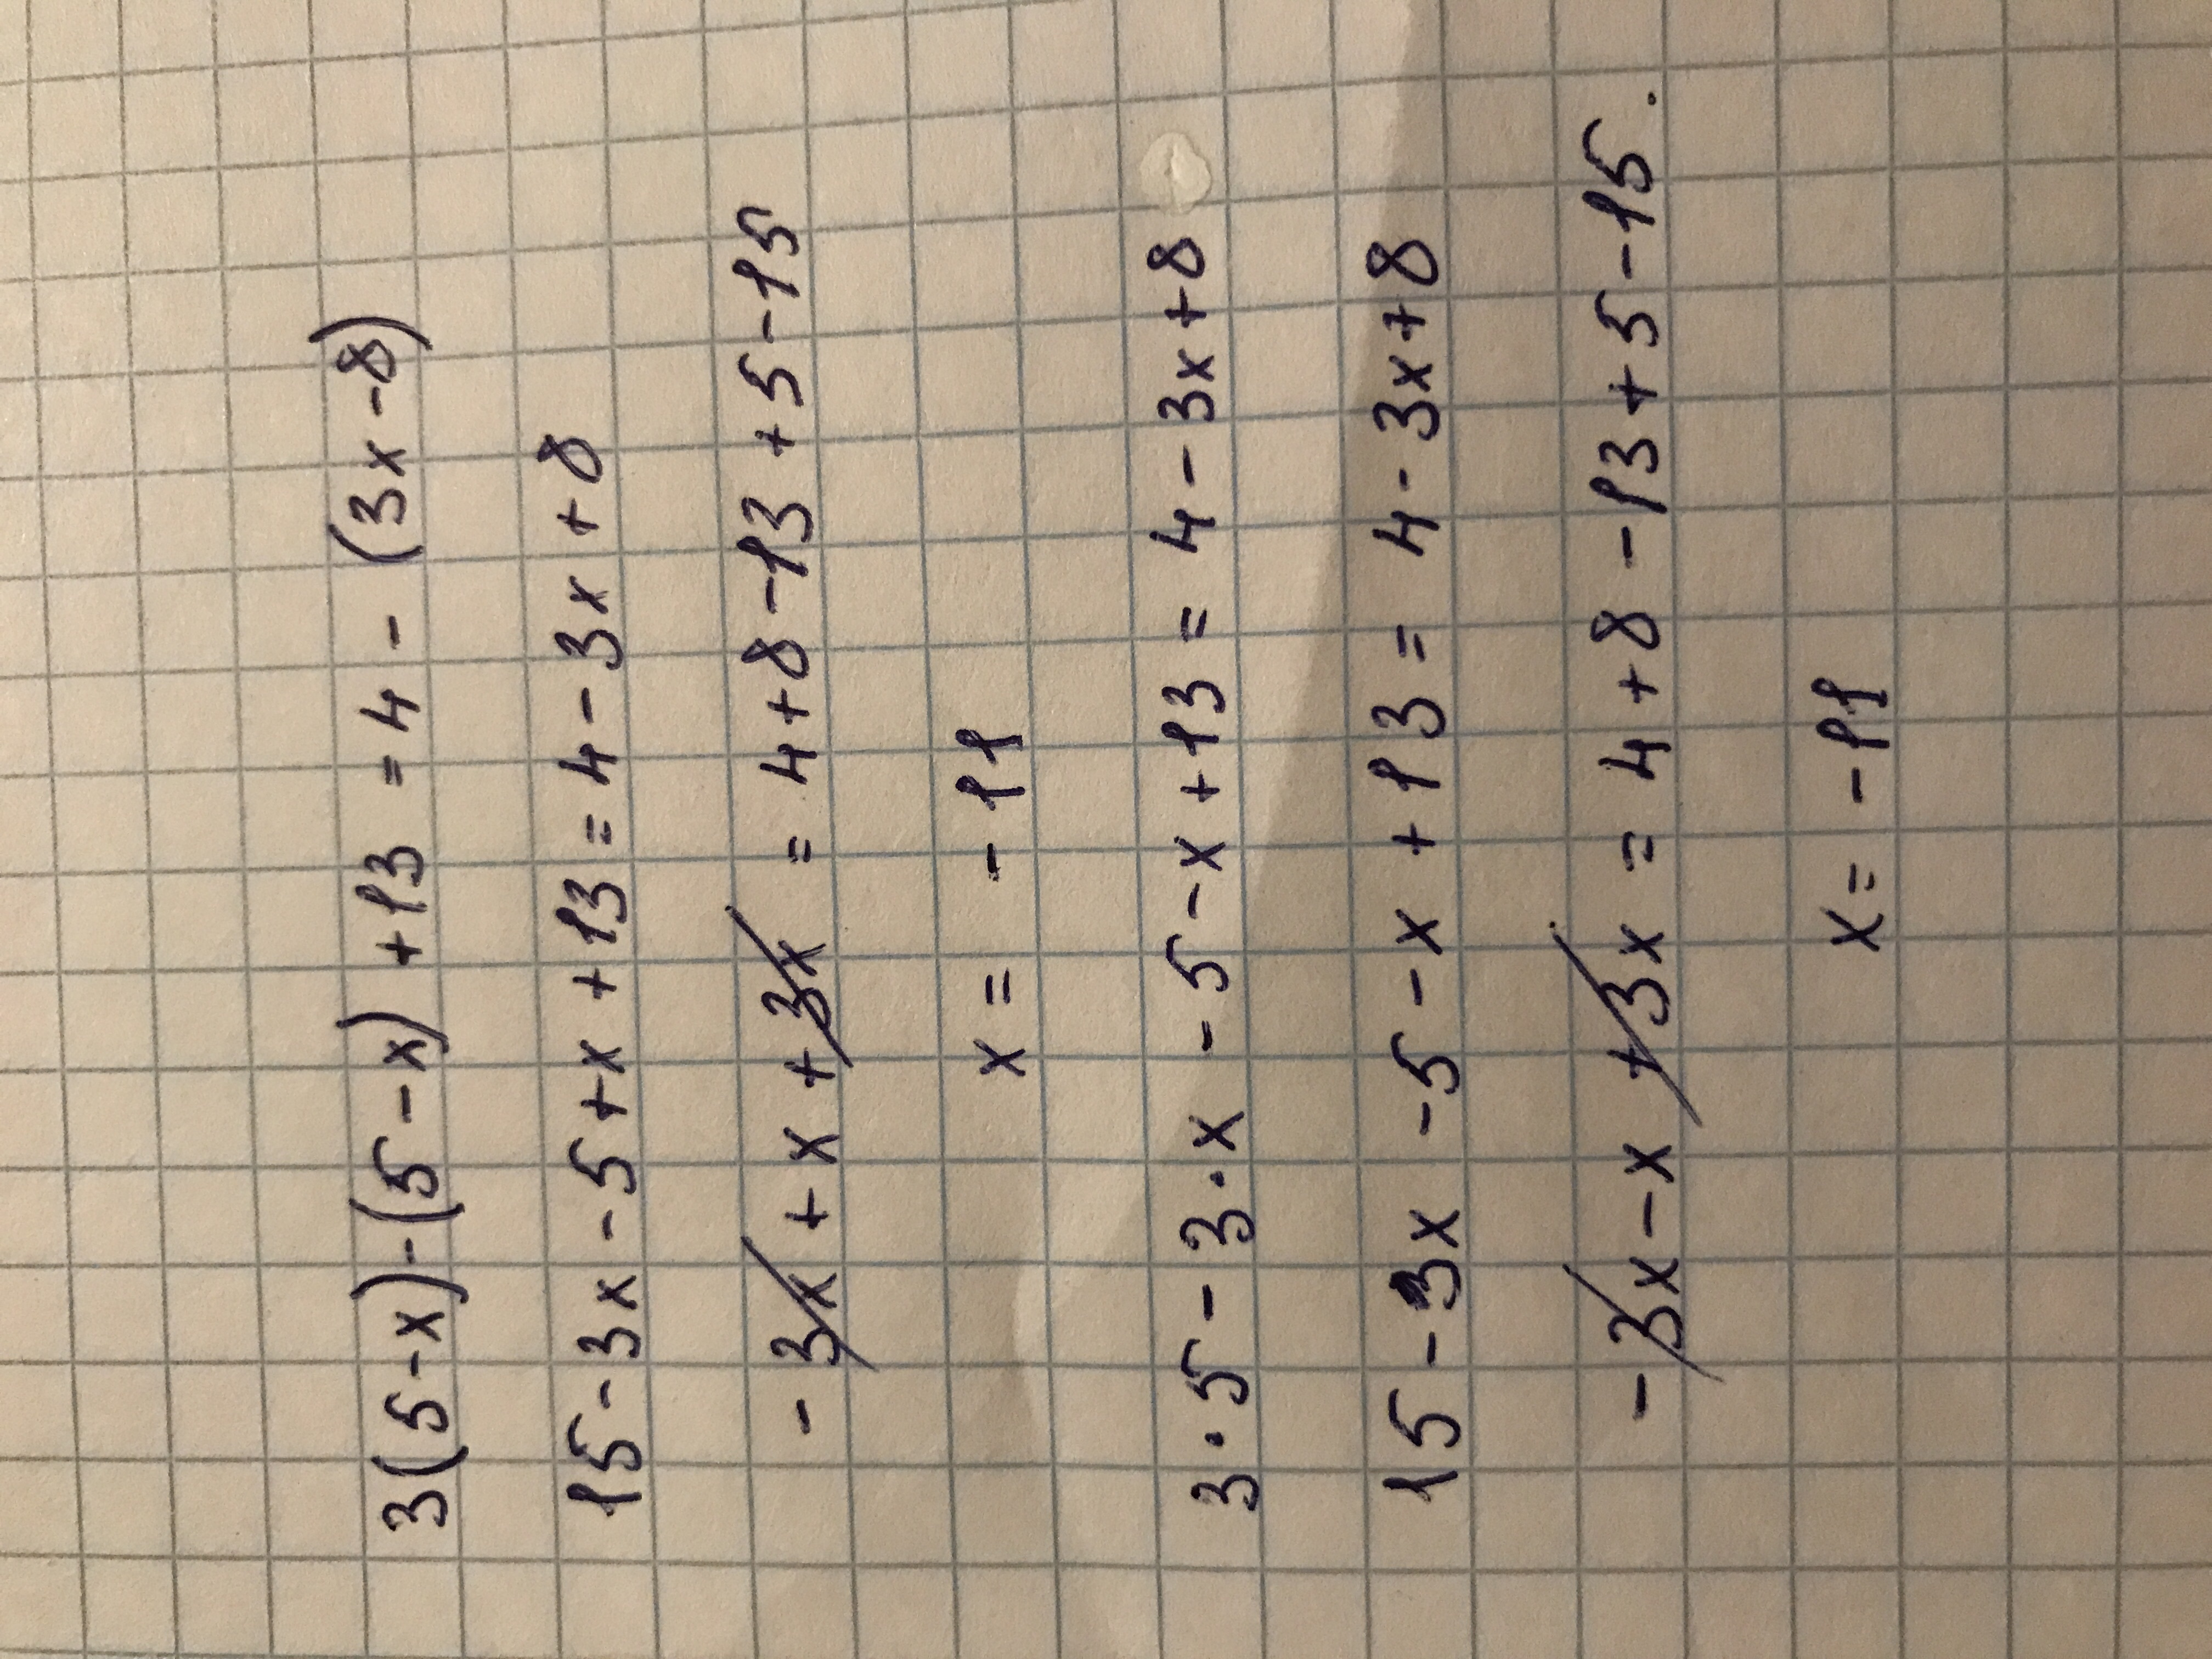 3(5-x)-(5-x)+13=4-(3x-8)
15-3x-5+x+13=4-3x+8
-3x+x+3x=4+8-13+5-15
x=-11
3·5-3·x-5-x+13=4-3x+8
15-3x-5-x+13=4-3x+8
-3x-x+3x=4+8-13+5-15.
x=-11